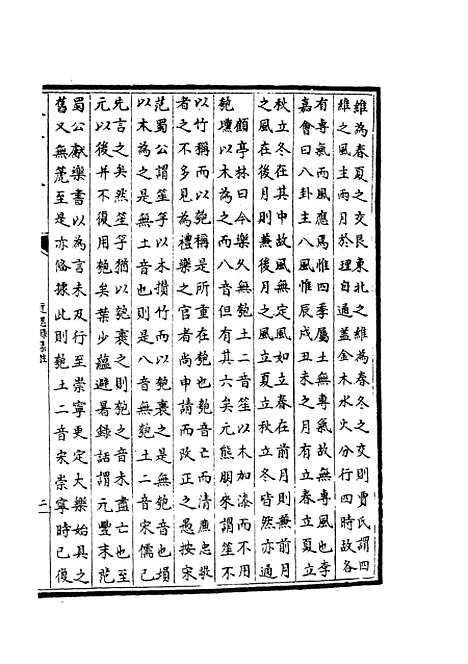 維為春夏之交艮東北之維為春冬之交則賈氏謂四
維之風主兩月於理自通蓋金木水火分行四時故各
有專氣而風應焉惟四季屬土無專氣故無專風也李
嘉會曰八卦主八風惟辰戌丑未之月有立春立夏立
秋立冬在其中故風無定風如立春在前月則兼前月
之風在後月則兼後月之風立夏立秋立冬皆然亦通
顧亭林曰今樂久無匏土二音笙以木加漆而不用
匏壎以木為之而八音但有其六矣元熊朋來謂笙不
以竹稱而以匏稱是所重在匏也匏音亡而清廉忠敬
者之不多見為禮樂之官者尚申請而改正之愚按宋
范蜀公謂笙竽以木攢竹而以匏裹之是無匏音也塤
以木為之是無土音也是八音無匏土二音宋儒已
先言之矣然笙竽猶以匏裹之則匏之音未盡亡也至
元以後並不復用匏矣葉少蘊避暑錄話謂元豐末范
蜀公獻樂書以為言未及行至崇寧更定大樂始具之
舊又無箎至是亦備據此則匏土二音宋崇寧時已復
二